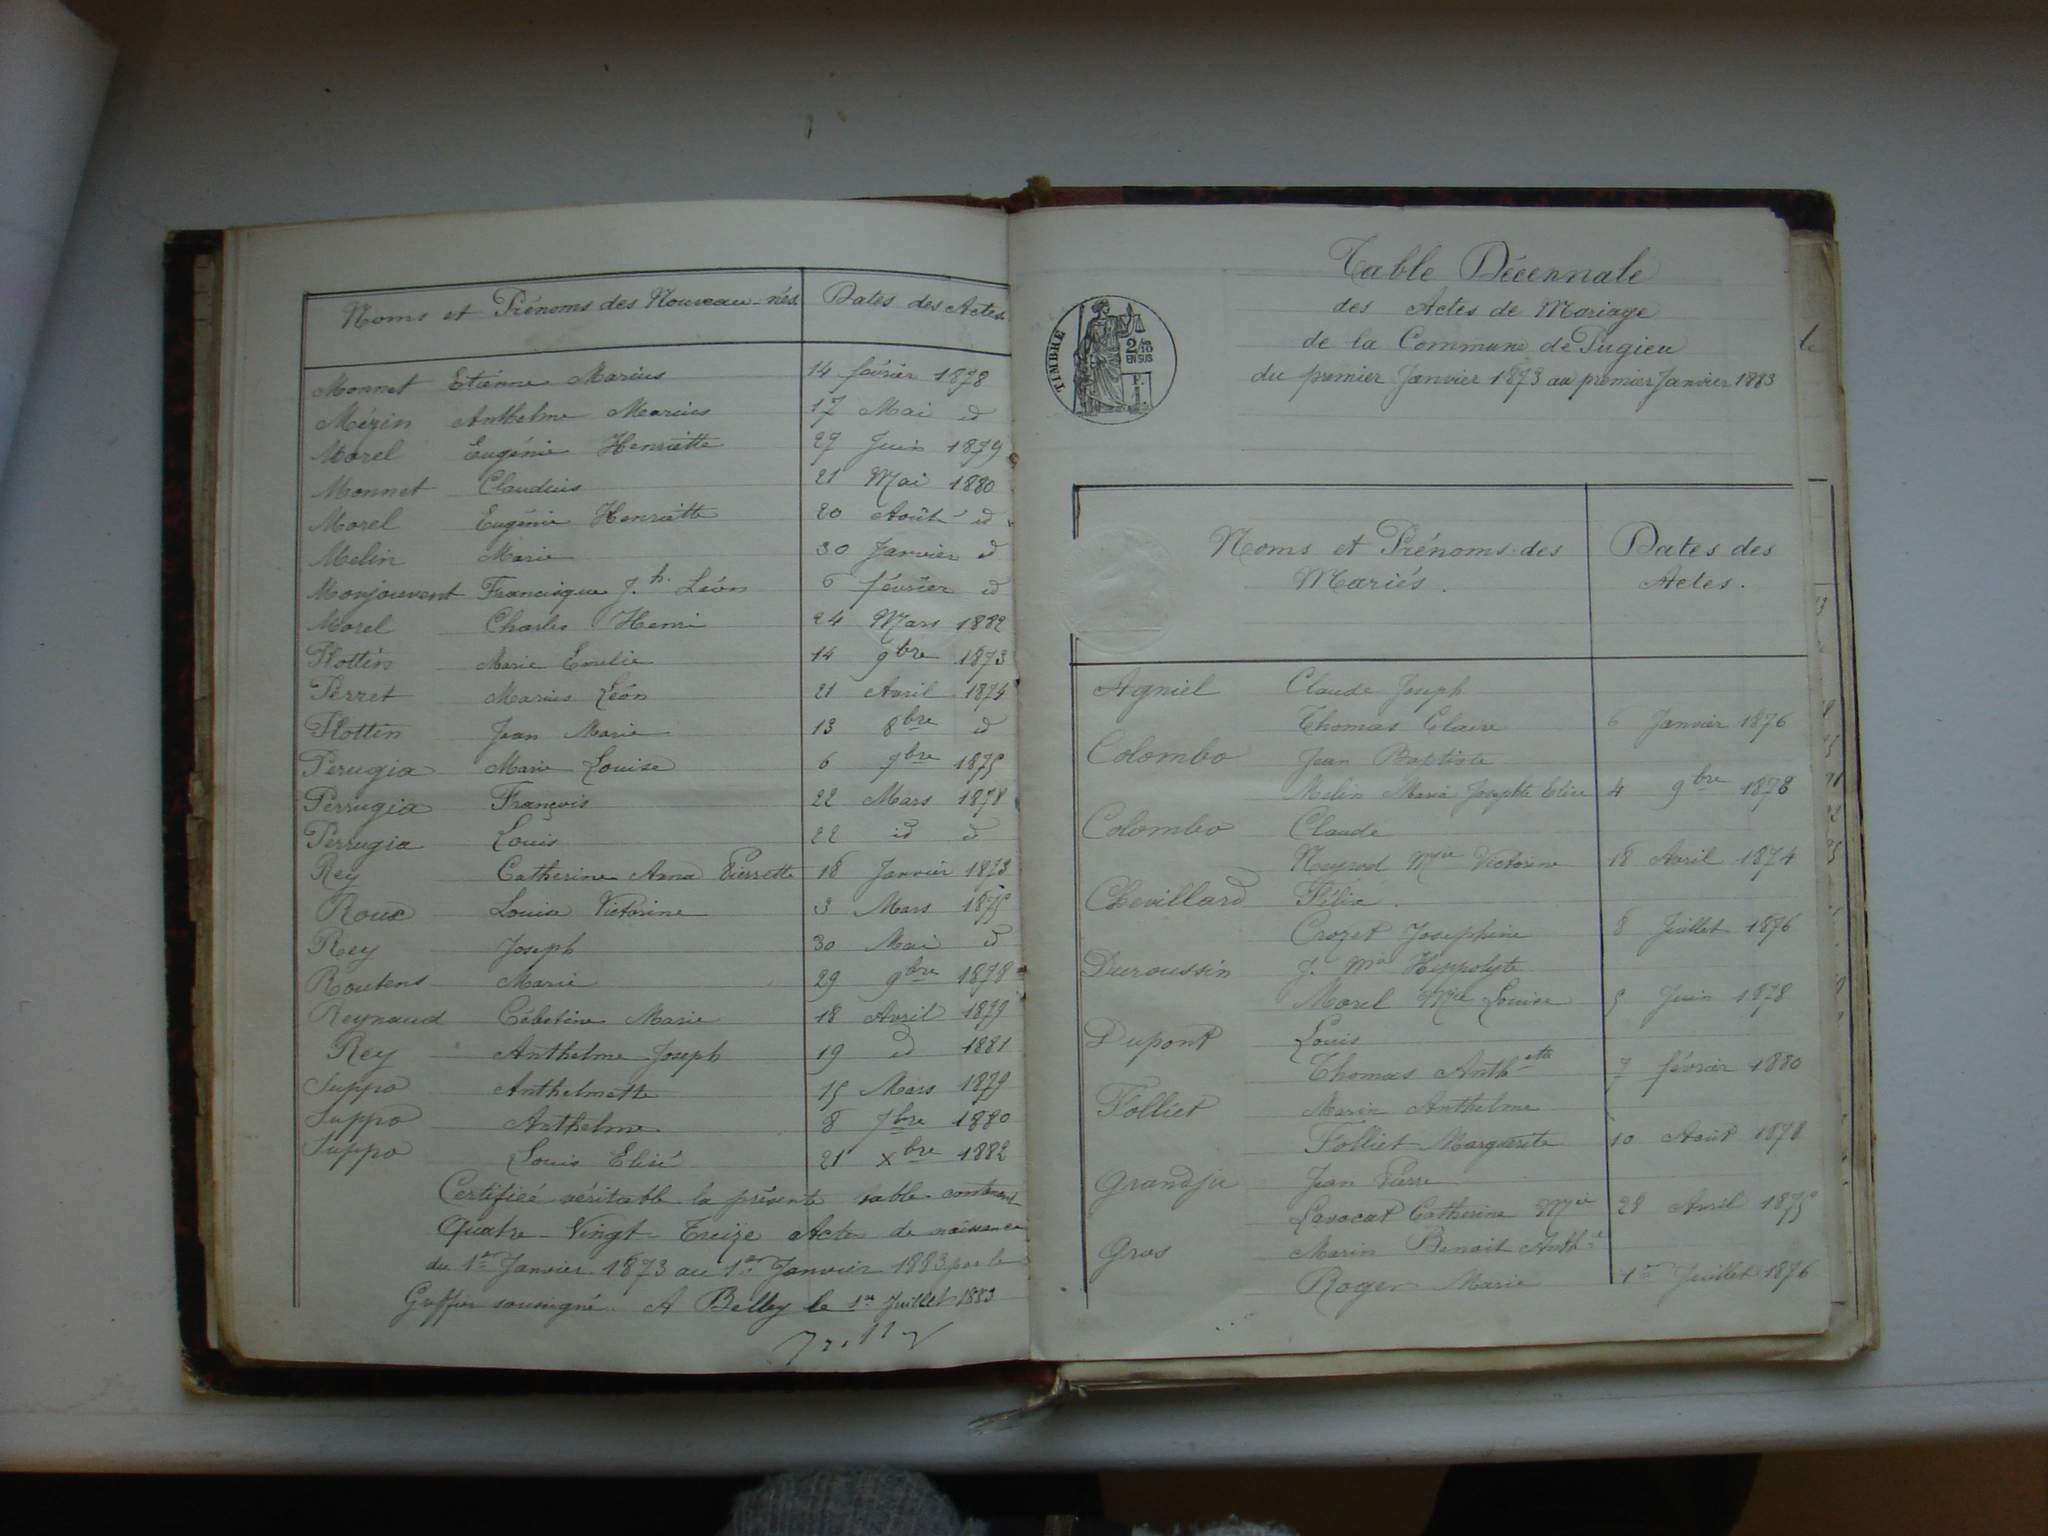 Noms et Prénoms des Nouveau-nés Dates des Actes
Monnet Etienne Marius 14 février 1878
Mézin Anthelme Marius 17 Mai id
Morel Eugénie Henriette 27 Juin 1879
Monnet Claudius 21 Mai 1880
Morel Eugénie Henriette 20 Août id
Melin Marie 30 Janvier id
Monjouvent Francisque J.h Léon 6 février id
Morel Charles Henri 24 Mars 1882
Plottin Marie Emelie 14 9bre 1873
Perret Marius Léon 21 Avril 1874
Plottin Jean Marie 13 8bre id
Perugia Marie Louise 6 9bre 1875
Perrugia François 22 Mars 1878
Perrugia Louis 22 id id
Rey Catherine Anna Pierrette 18 Janvier 1873
Roux Louise Victorine 3 Mars 1875
Rey Joseph 30 Mai id
Routens Marie 29 9bre 1878
Reynaud Célestine Marie 18 Avril 1879
Rey Anthelme Joseph 19 id 1881
Suppo Anthelmette 15 Mars 1879
Suppo Anthelme 8 7bre 1880
Suppo Louis Elisé 21 Xbre 1882
Certifiée véritable la présente table contenant
Quatre-Vingt-Treize Actes de naissance
du 1er Janvier 1873 au 1er Janvier 1883 par le
Greffier soussigné. A Belley le 1er Juillet 1883
Table Décennale
des Actes de Mariage
de la Commune de Pugieu
du premier Janvier 1873 au premier Janvier 1883
TIMBRE
2/10
EN SUS
Noms et Prénoms des Dates des
Mariés. Actes.
Agniel Claude Joseph
Thomas Claire 6 Janvier 1876
Colombo Jean Baptiste
Melin Marie Josephte Elise 4 9bre 1878
Colombo Claude
Neyrod Mie Victorine 18 Avril 1874
Chevillard Félix.
Crozet Josephine 8 Juillet 1876
Duroussin J. Mie Hippolyte
Morel Mie Louise 5 Juin 1878
Dupont Louis
Thomas Anthette 7 février 1880
Folliet Marin Anthelme
Folliet Marguerite 10 Août 1878
Grandju Jean Pierre
Lavocat Catherine Mie 28 Avril 1875
Gros Marin Benoit Anthe
Roger Marie 1er Juillet 1876